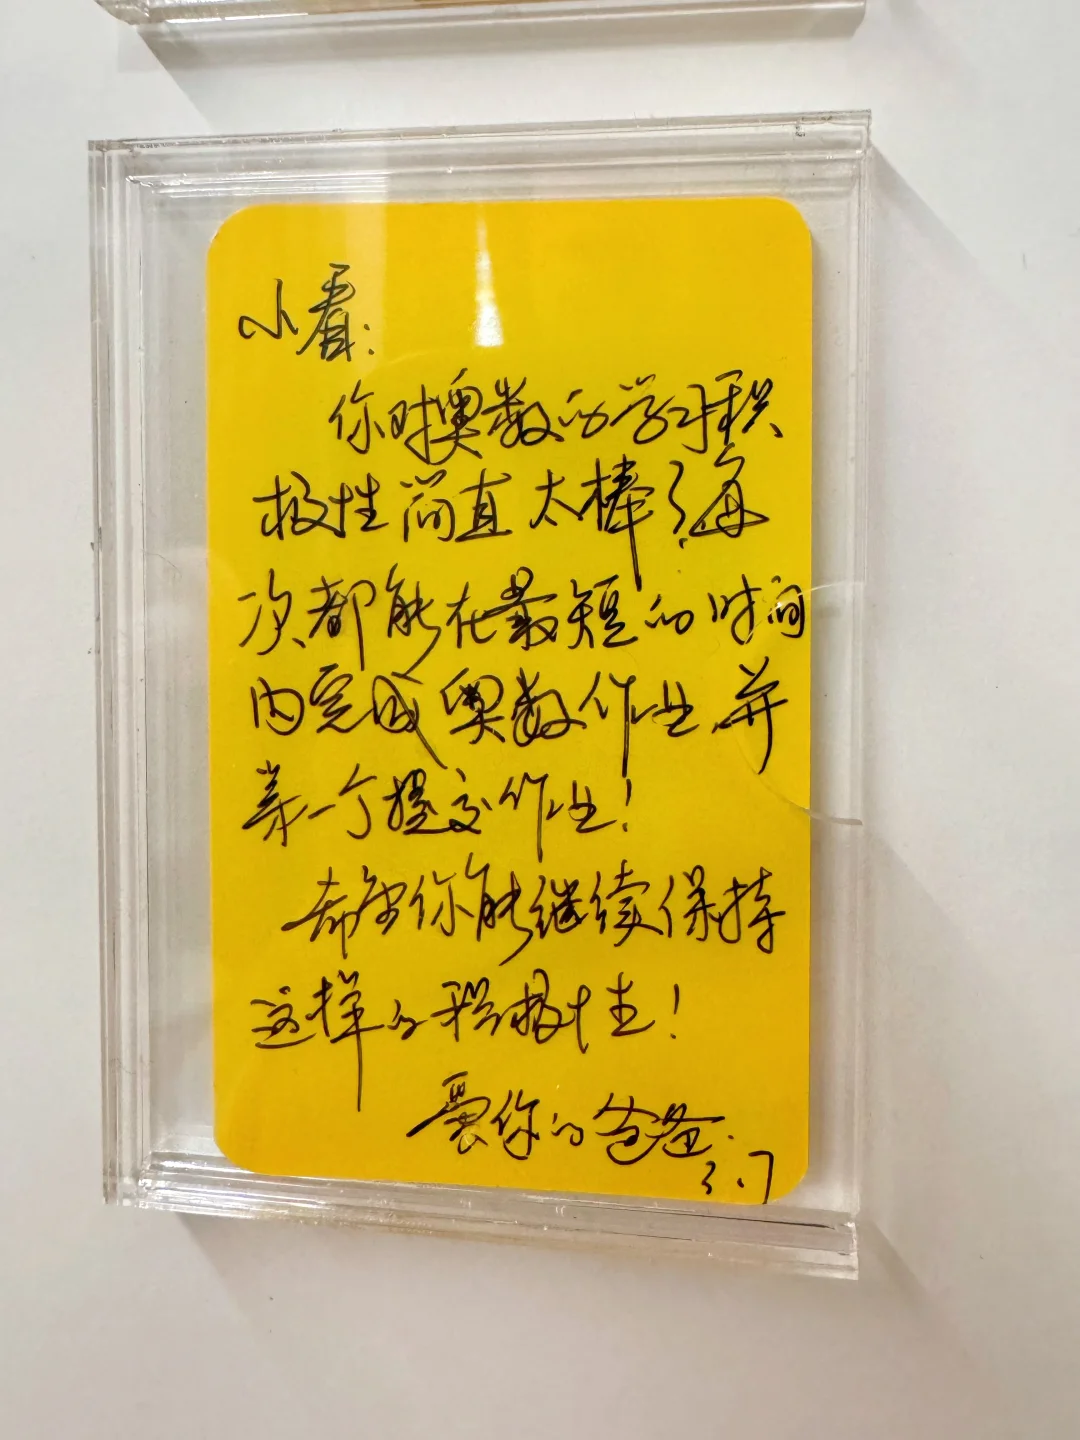 小看：
你对奥数的学习积
极性简直太棒了，每
次都能在最短的时间
内完成奥数作业，并
第一个提交作业！
希望你能继续保持
这样的积极性！
爱你的爸爸.
3.7